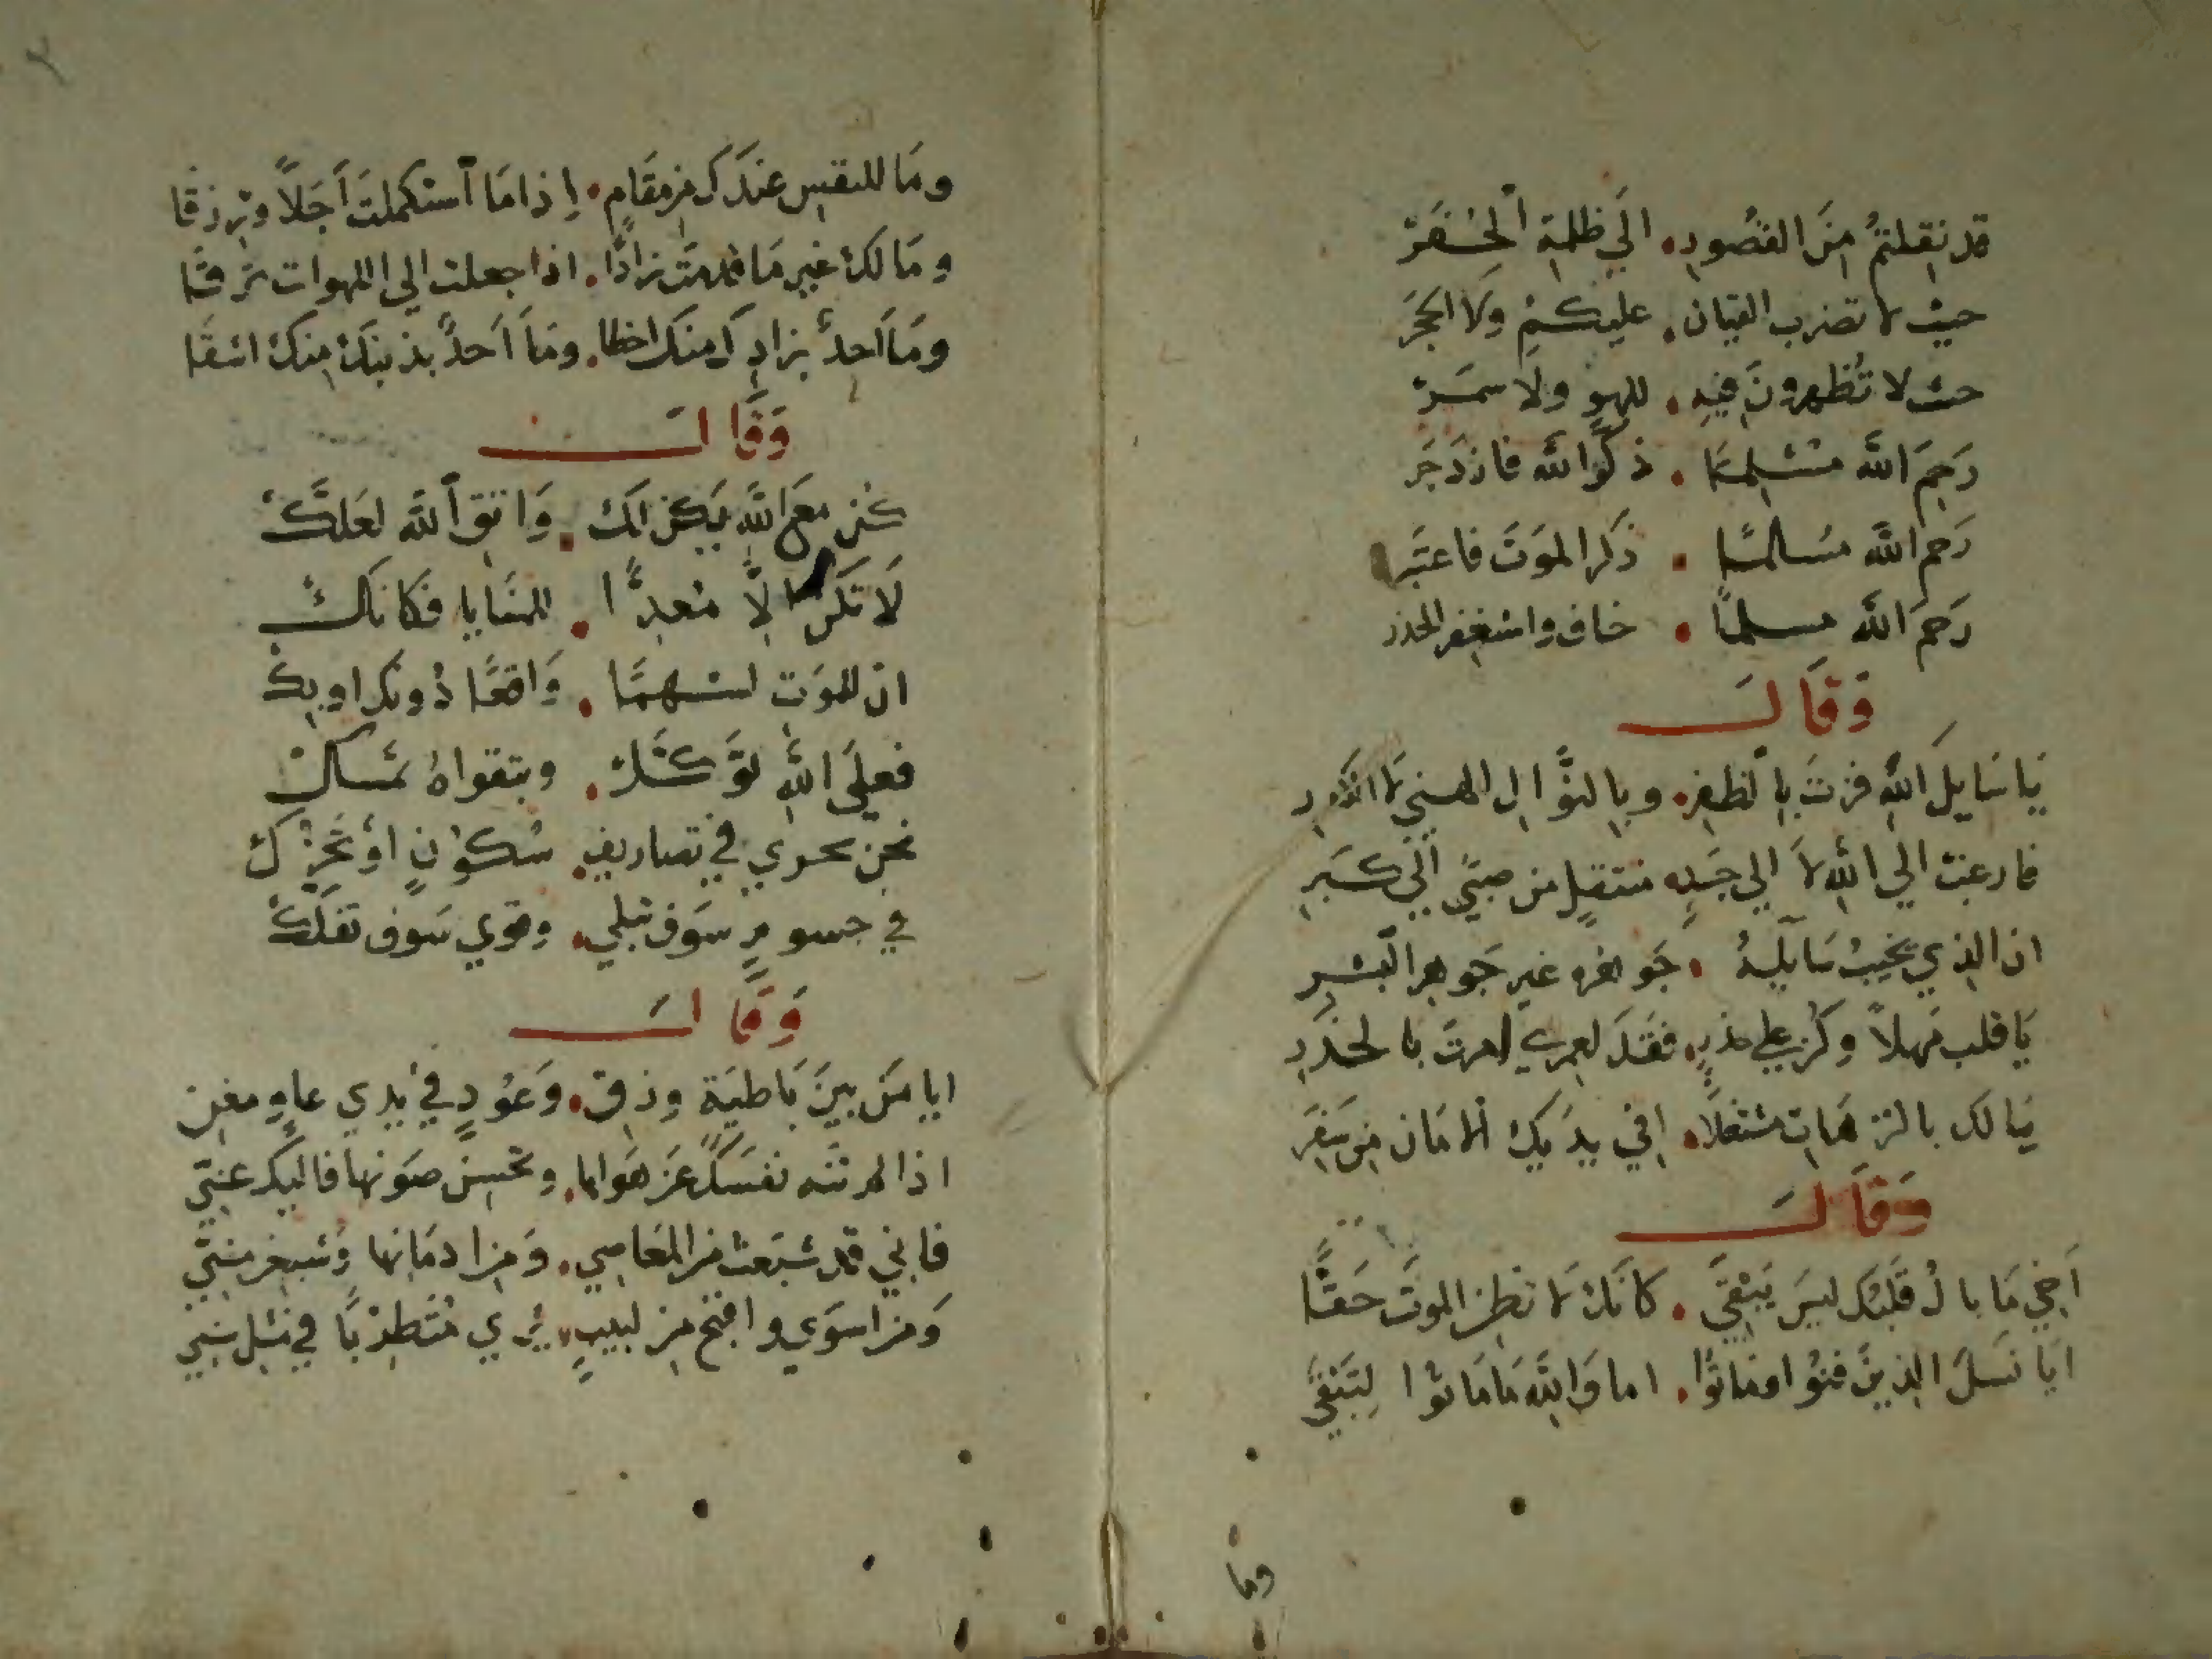 قد نقلتم من القصور. الي ظلمة الحفر
حيث لا تضرب القيان. عليكم ولا الحجر
حيث لا تظهرون فيه. للهو ولا سمر
رحم الله مسلما. ذكر الله فازدجر
رحم الله مسلما. ذكر الموت فاعتبر
رحم الله مسلما. خاف واستغفر الحذر
وقال
يا سايل الله فزت بالظفر. وبالنوال الهني لا الكدر
فارغب الي الله لا الي جسد. منتقل من صبي الي كبر
ان الذي يخيب سايله. جوهره غير جوهر البشر
يا قلب مهلا وكن علي حذر. فقد لعمري امرت بالحذر
يا لك بالترهات مشتغلا. افي يديك الامان من سقر
وقال
اخي ما بال قلبك ليس ينقي. كانك لا تظن الموت حقا
ايا نسل الذين فنوا وماتوا. اما والله ما ماتوا لتبقي
وما
٢
وما للنفس عندك من مقام. اذا ما استكملت اجلا ورزقا
وما لك غير ما قدمت زادا. اذا جعلت الي اللهوات ترقا
وما احد بزادك منك احظا. وما احد بذنبك منك اشقا
وقال
كن مع الله يكن لك. واتق الله لعلك
لا تكن الا معدا. للمنايا فكانك
ان للموت لسهما. واقعا دونك او بك
فعلي الله توكل. وبتقواه تمسك
نحن نجري في تصاريف. سكون او تحرك
في جسوم سوف تبلي. وقوي سوف تفك
وقال
ايا من بين باطية وزق. وعود في يدي عاو مغن
اذا لم تنه نفسك عن هواها. وتحسن صونها فاليك عني
فاني قد شبعت من المعاصي. ومن ادمانها وشبعن مني
ومن اسوي واقبح من لبيب. يري متطربا في مثل سني